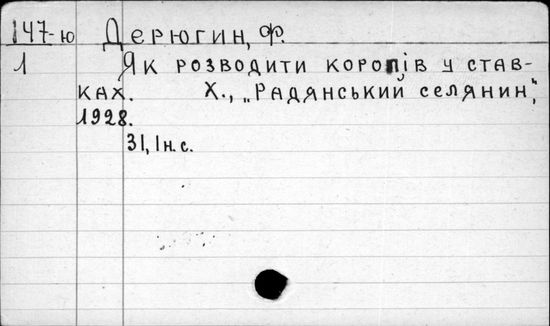 147-ю Дерюгин, Ф.
1 Як розводити коропів у став-
ках. Х., „Радянський селянин",
1928.
31, 1 н. с.